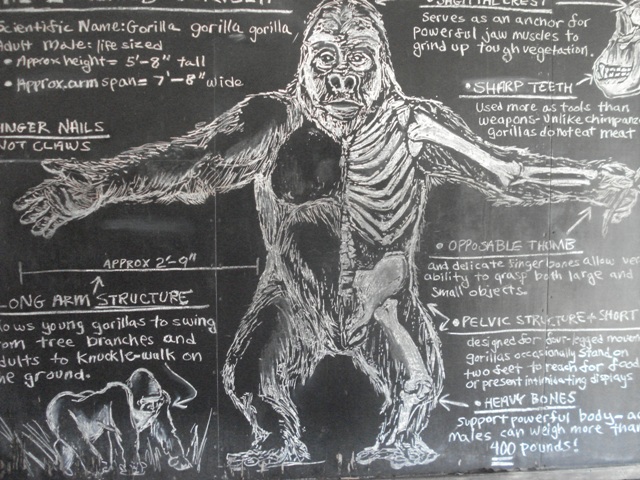 Scientific Name: Gorilla gorilla gorilla
Adult Male: life sized
• Approx height = 5'-8" tall
• Approx. arm span = 7'-8" wide
SAGITTAL CREST
Serves as an anchor for
powerful jaw muscles to
grind up tough vegetation.
• SHARP TEETH
Used more as tools than
weapons-Unlike chimpanz
gorillas do not eat meat
INGER NAILS
NOT CLAWS
APPROX 2'-9"
ONG ARM STRUCTURE
lows young gorillas to swing
om tree branches and
dults to knuckle-walk on
he ground.
• OPPOSABLE THUMB
and delicate finger bones allow ver
ability to grasp both large and
small objects.
• PELVIC STRUCTURE + SHORT
designed for four-legged movem
gorillas occasionally stand on
two feet to reach for food
or present intimidating displays
• HEAVY BONES
support powerful body- a
males can weigh more than
400 pounds!